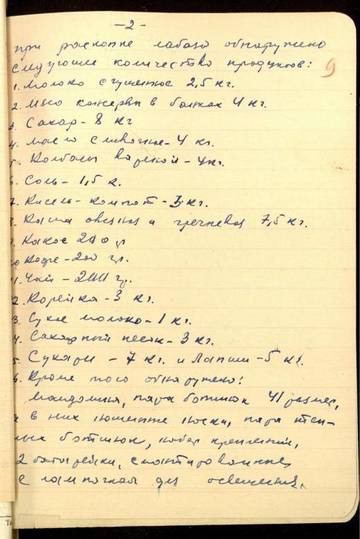 - 2 -
при раскопке лабаза обнаружено
следующие количество продуктов: 9
1. Молоко сгущенное 2,5 кг.
2. Мясо консервы в банках 4 кг.
3. Сахар - 8 кг
4. масло сливочное - 4 кг.
5. Колбасы вареной - 4 кг.
6. Соль - 1,5 к.
7. Кисель - компот - 3 кг.
8. Каша овсяная и гречневая 7,5 кг.
9. Какао 200 гр
10 Кофе - 200 гр.
11. Чай - 200 гр.
12. Корейка - 3 кг.
13. Сухое молоко - 1 кг.
14. Сахарный песок - 3 кг.
15 Сухари - 7 кг. и Лапши - 5 кг.
16. Кроме того обнаружено:
Мандолина, пара ботинок 41 размер,
и в них ношенные носки, пара
ботинок, крепления,
2 батарейки, смонтированные
с лампочкой для освещения.